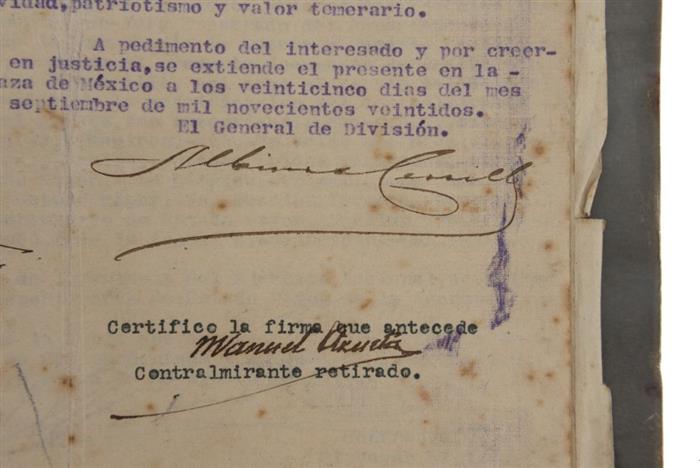 vidad,patriotismo y valor temerario.
A pedimento del interesado y por creer-
en justicia,se extiende el presente en la -
aza de México a los veinticinco dias del mes
septiembre de mil novecientos veintidos.
El General de División.
Certifico la firma que antecede
Manuel Azueta
Contralmirante retirado.